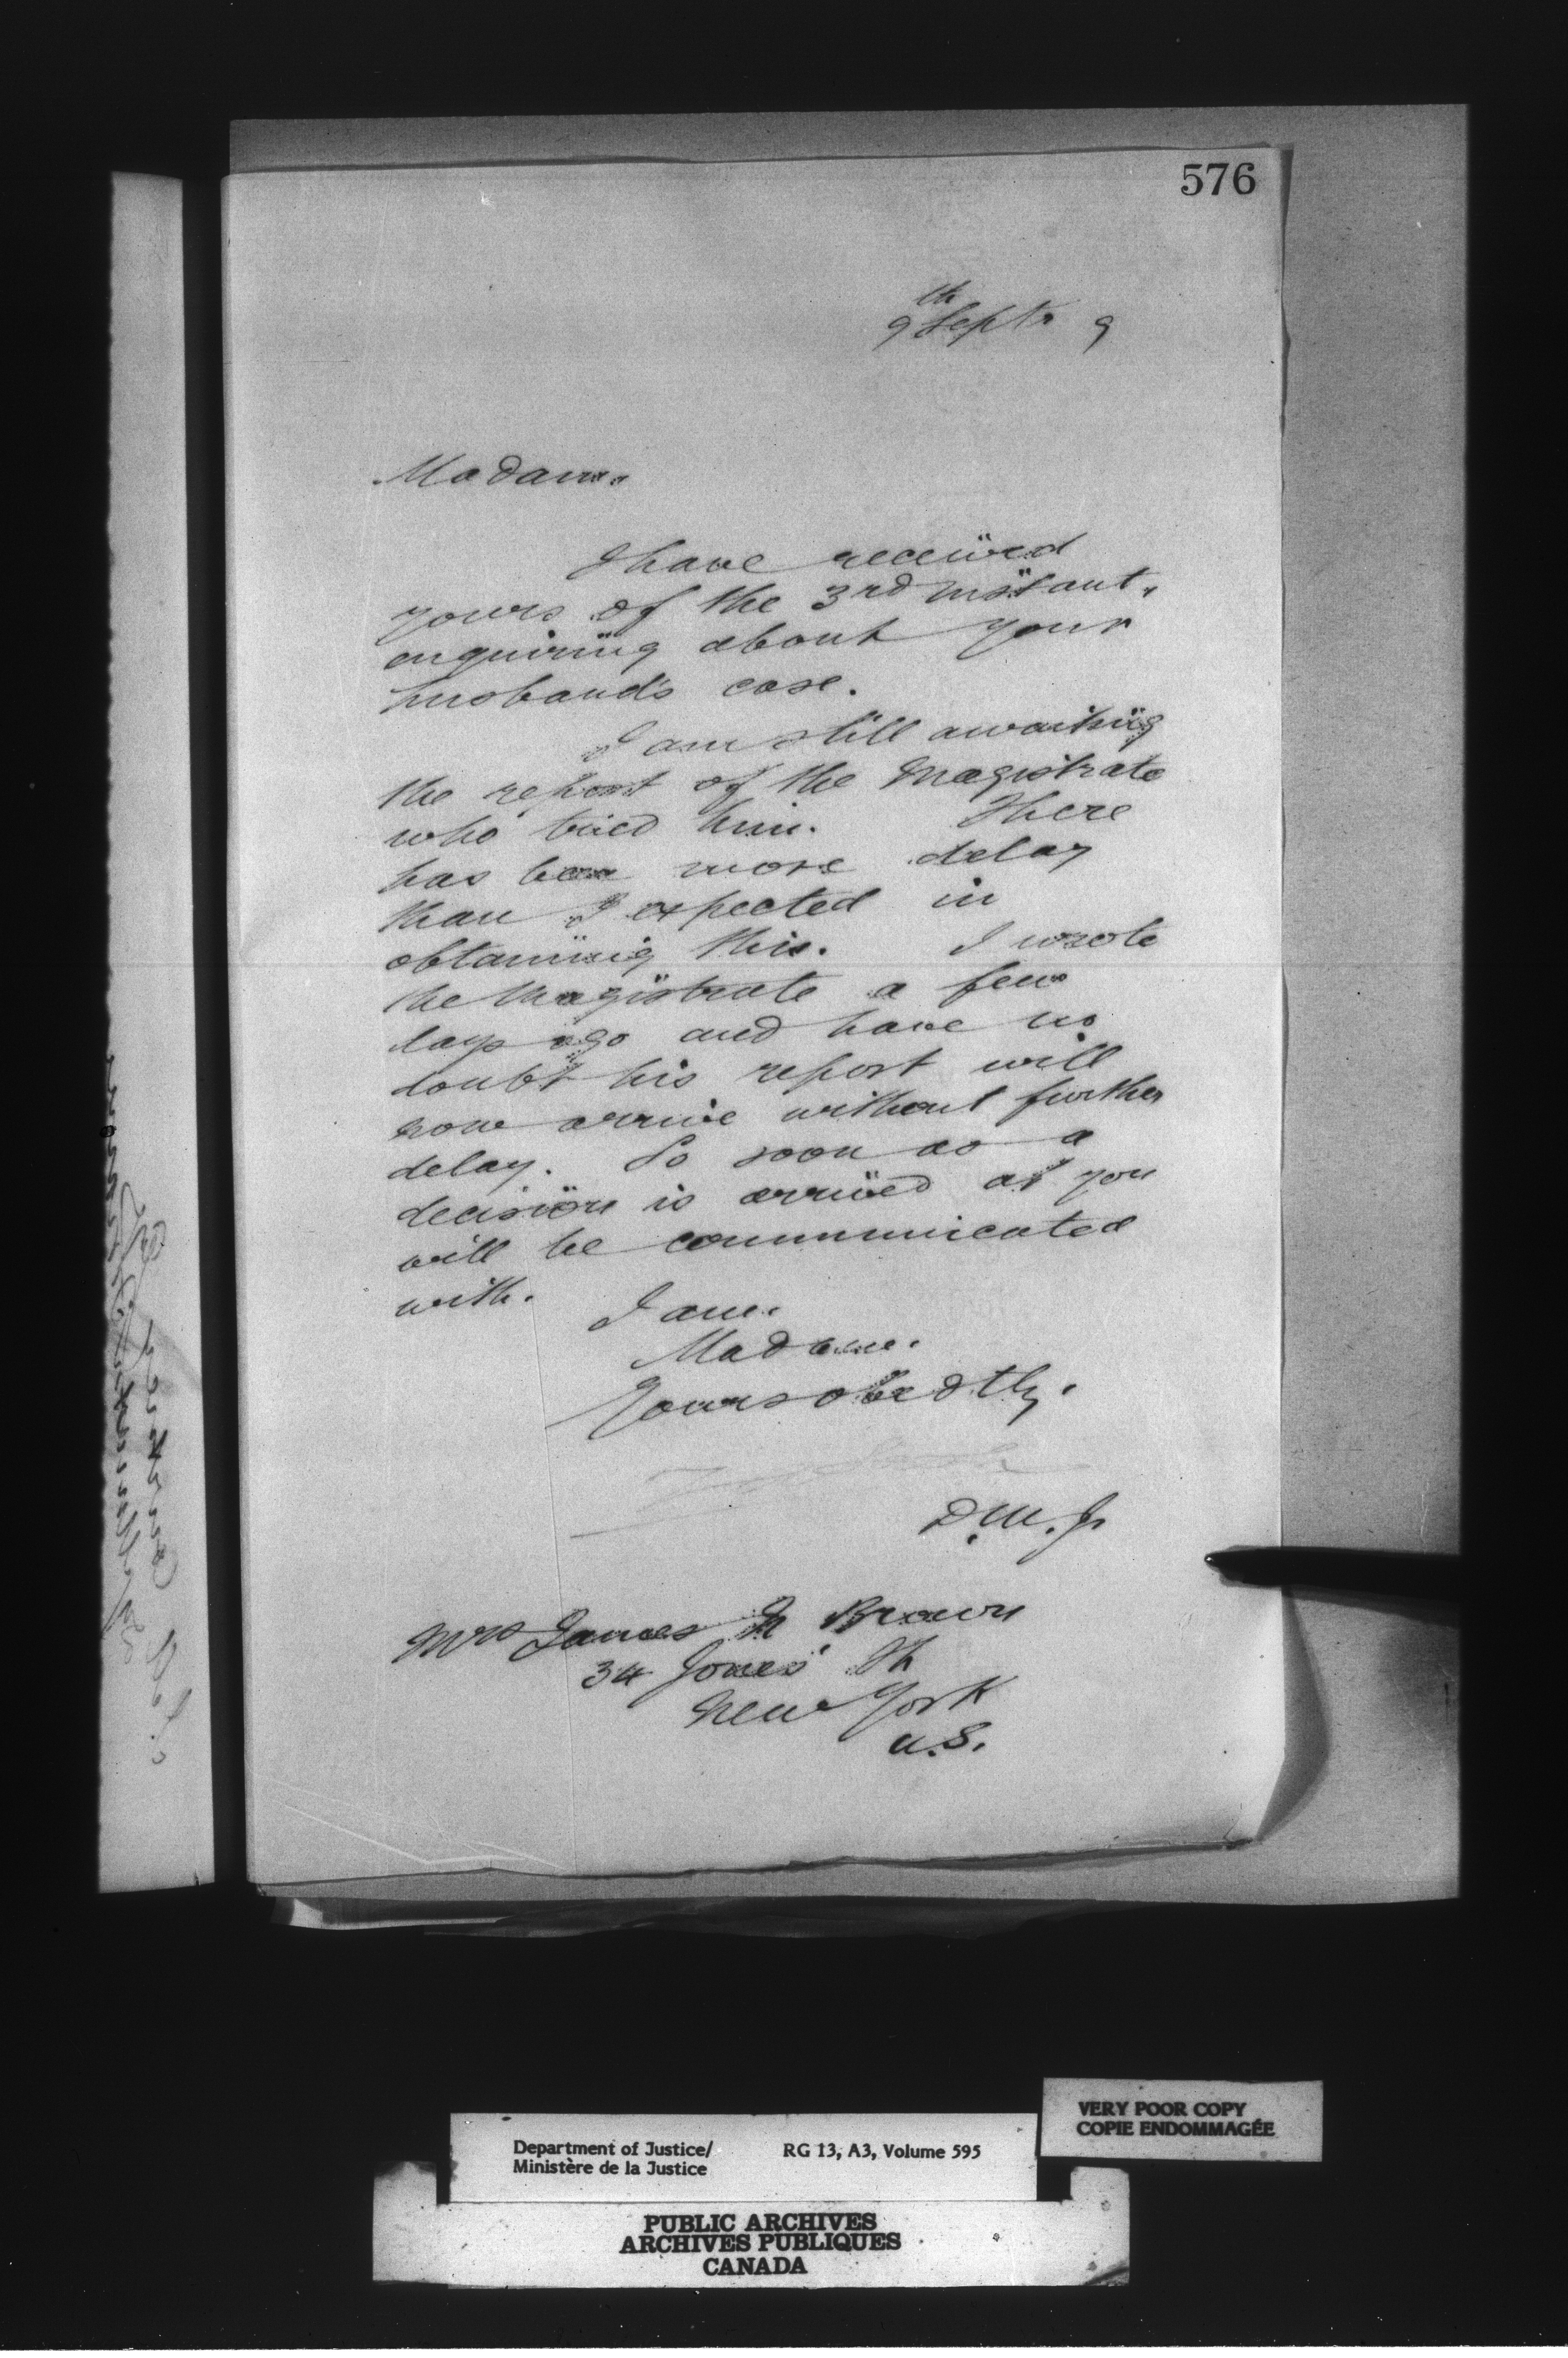 576
9th Septr 9
Madam.
I have received
yours of the 3rd instant,
enquiring about your
husband's case.
I am still awaiting
the report of the Magistrate
who tried him. There
has been more delay
than I expected in
obtaining this. I wrote
the Magistrate a few
days ago and have no
doubt his report will
now arrive without further
delay. So soon as a
decision is arrived at you
will be communicated
with.
I am.
Madam.
Yours obedtly.
D.M.J.
Mrs James Brown
34 Jones St
New York
U.S.
VERY POOR COPY
COPIE ENDOMMAGÉE
Department of Justice/ RG 13, A3, Volume 595
Ministère de la Justice
PUBLIC ARCHIVES
ARCHIVES PUBLIQUES
CANADA